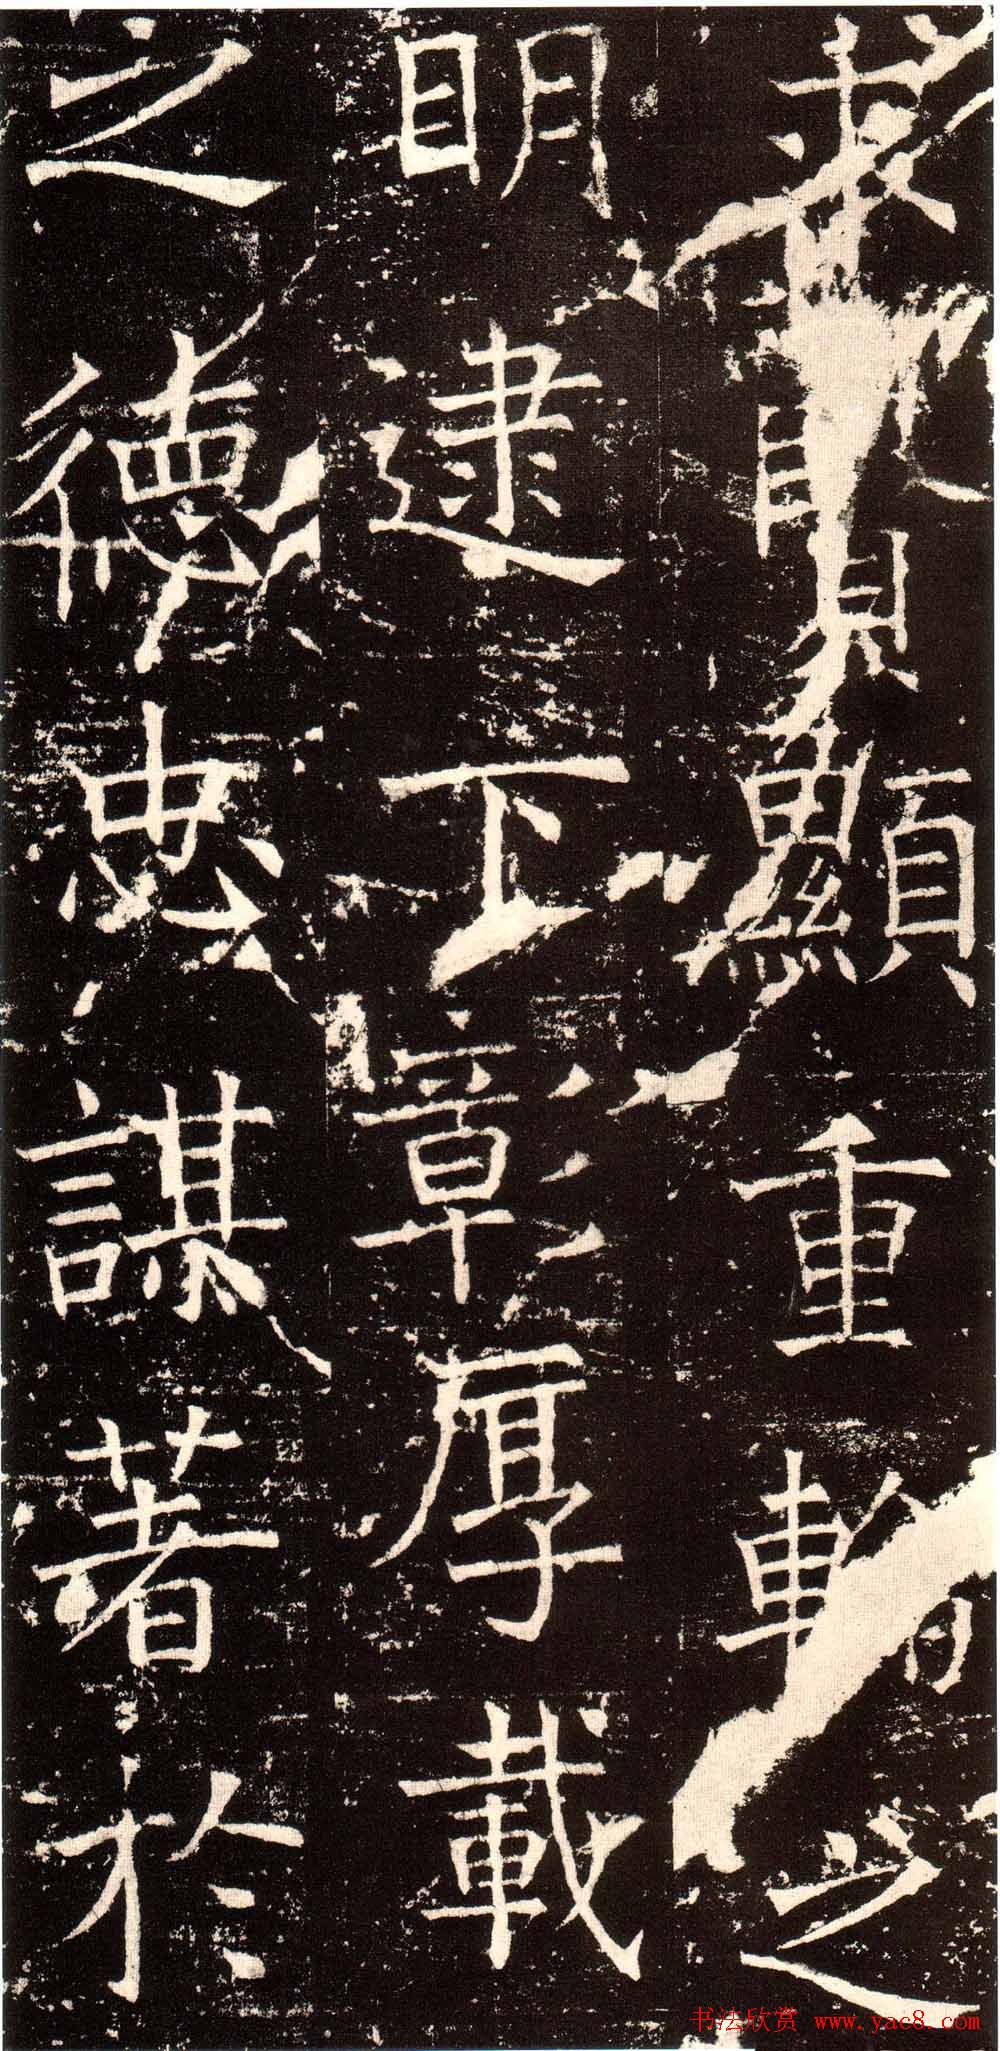 求賢顯重輪之
明逮下彰厚載
之德忠謀著於
书法欣赏 www.yac8.com